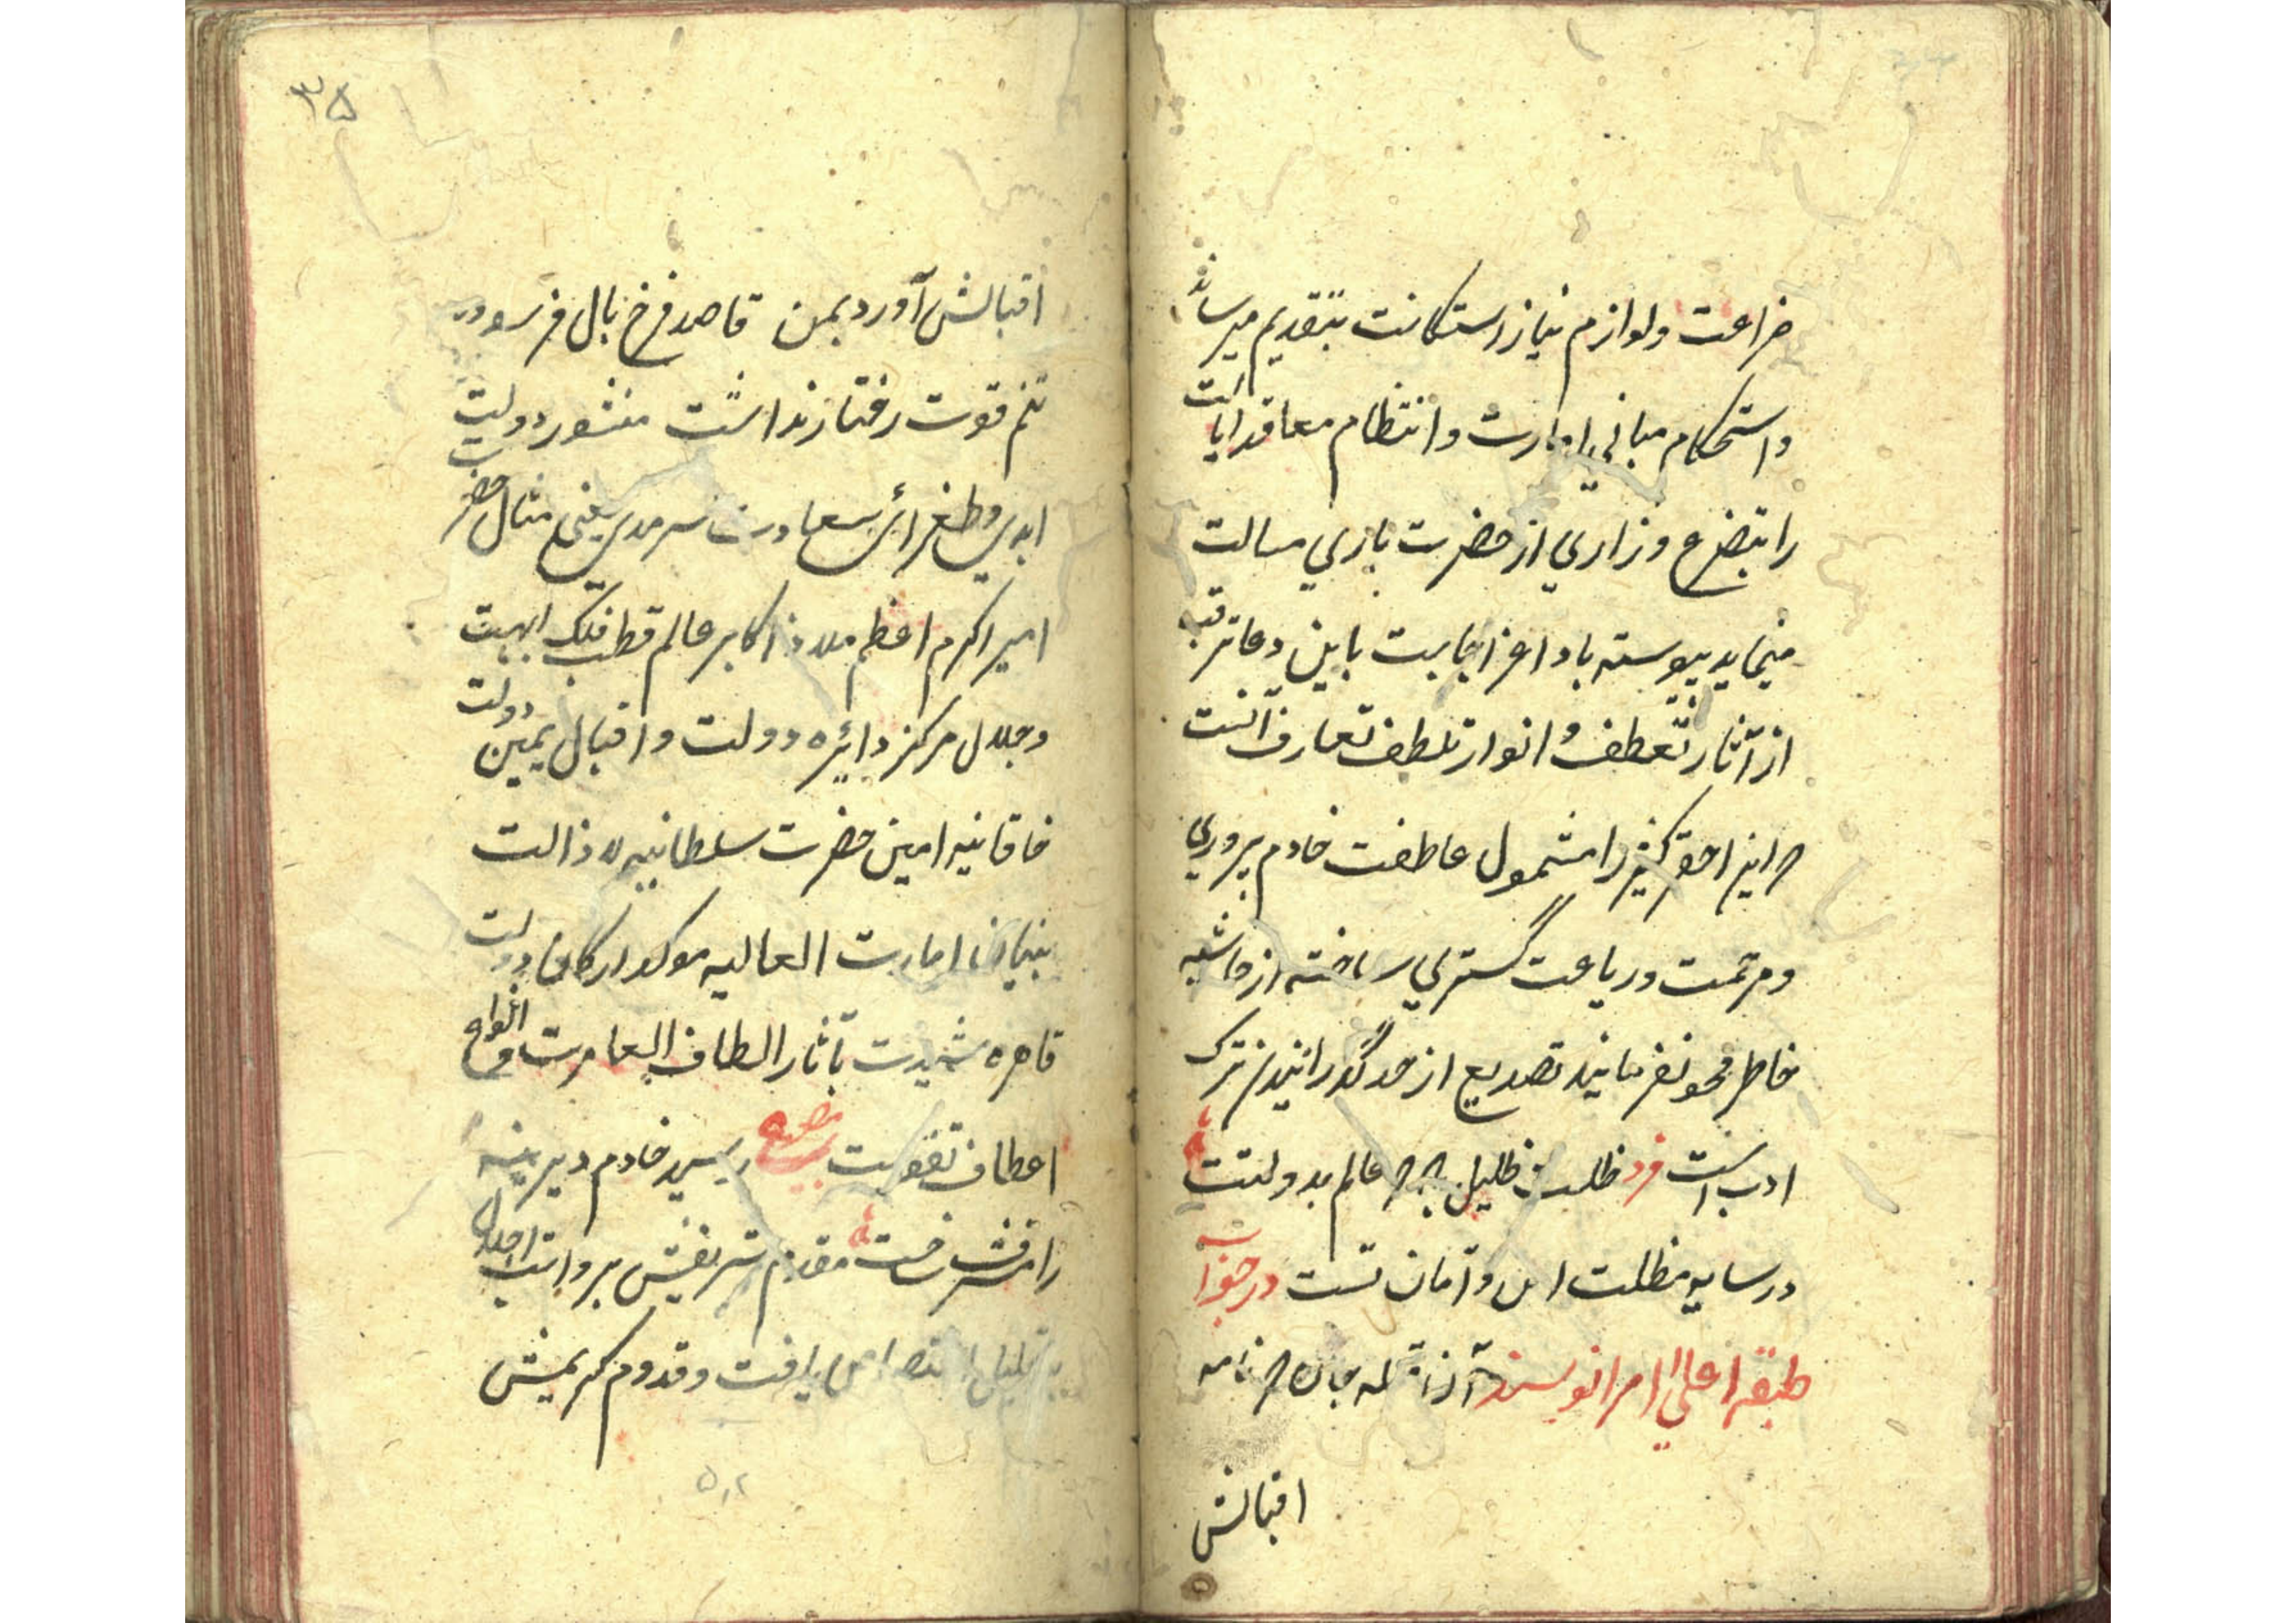 ضراعت ولوازم نیاز استکانت بتقدیم میرساند
و استحکام مبانی امارت و انتظام معاقد ایالت
را بتضرع و زاری از حضرت باری مسالت
مینماید پیوسته باد اعز اجابت باین دعا
از آثار تعطف و انوار تلطف تعارف آنست
که این احقر کمینه را مشمول عاطفت خادم پروری
و مرحمت و رعایت گستری ساخته از حاشیه
خاطر محو نفرمایند تصدیع از حد گذرانیدن ترک
ادب است فرد ظلت ظلیل که عالم بدولتت
در سایه مظلت امن و امان تست در جواب
طبقه اعلی امرا نویسند آن نامه
اقبالش
۳۵
اقبالش آورد بمن قاصد فرخ بال فر
تنم قوت رفتار نداشت منشور دولت
ابدی و طغرائی سعادت سرمدی یعنی مثال حضرت
امیر اکرم اعظم ملاذ اکابر عالم قطب فلک ابهت
و جلال مرکز دائره دولت و اقبال یمین دولت
خاقانیه امین حضرت سلطانیه لا زالت
بنیان امارت العالیه موکد ارکان دولت
قاهره شیدت بآثار الطاف العامرت انواع
اعطاف رسید خادم دیرینه
را مقدم شریفش اجلال
یافت و قدوم کریمش